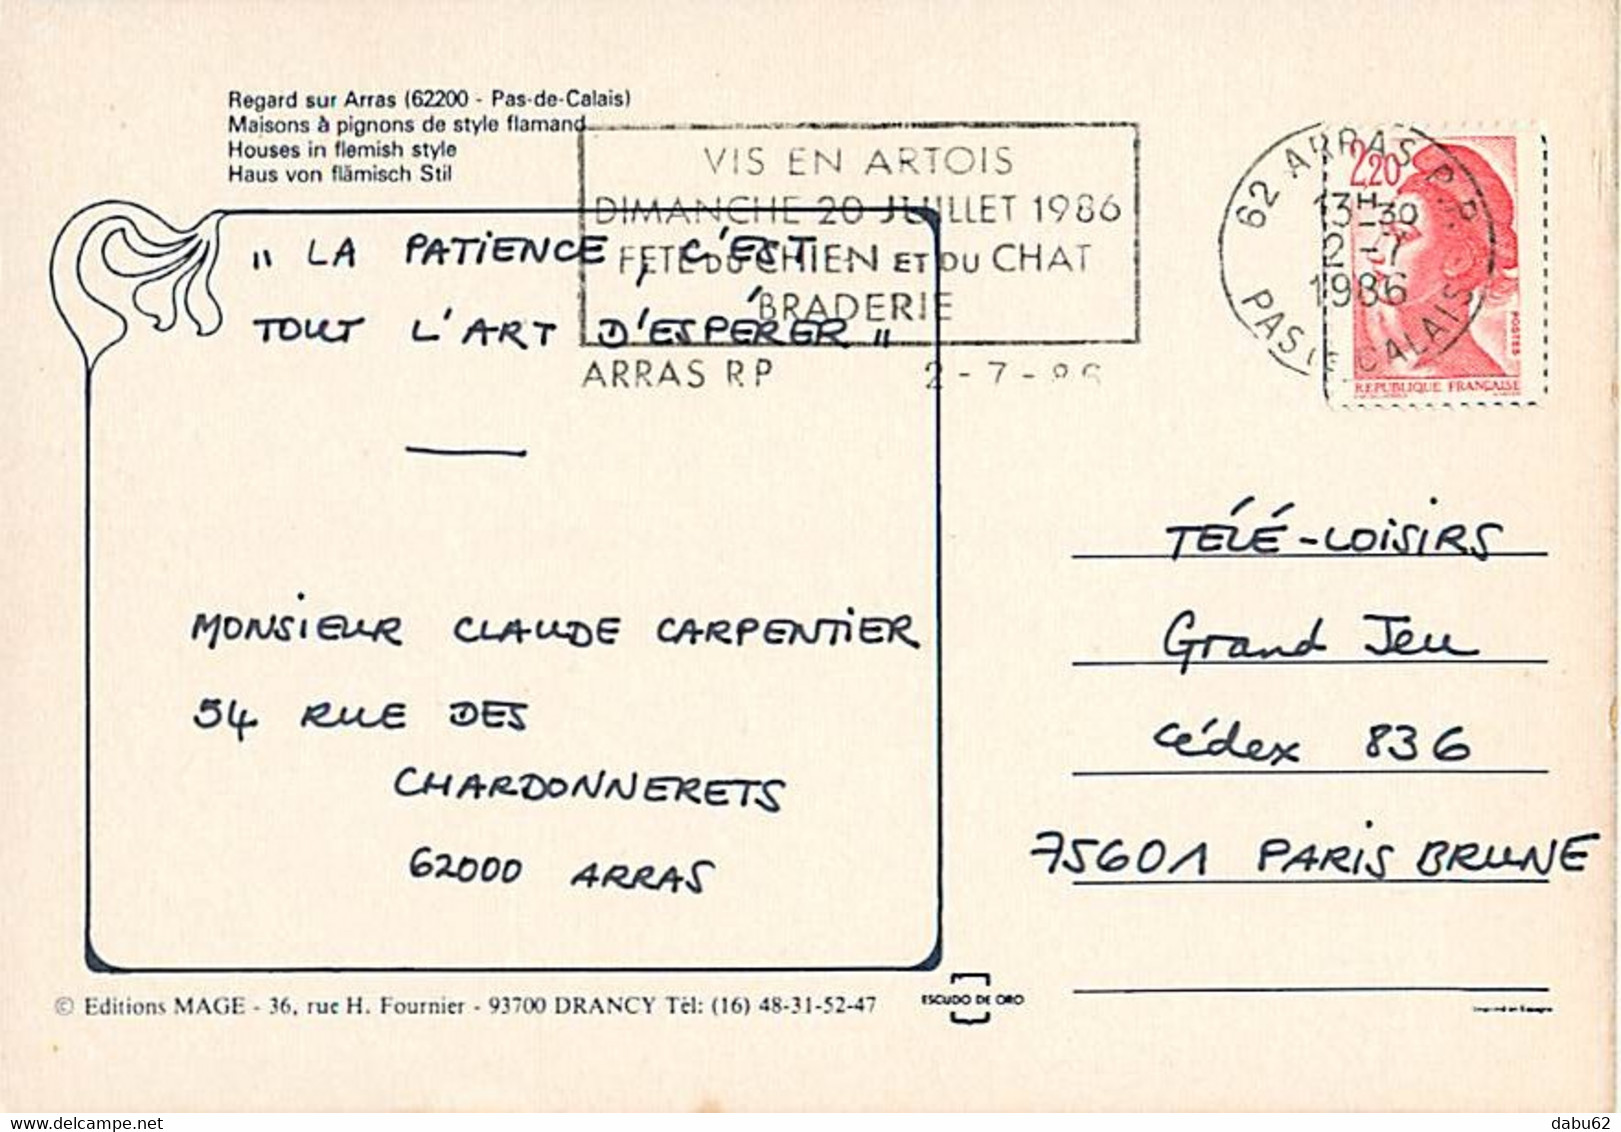 Regard sur Arras (62200 - Pas-de-Calais)
Maisons à pignons de style flamand
Houses in flemish style
Haus von flämisch Stil
VIS EN ARTOIS
DIMANCHE 20 JUILLET 1986
FETE DU CHIEN ET DU CHAT
BRADERIE
ARRAS RP 2-7-86
62 ARRAS R.P.
13H30
2-7
1986
PAS DE CALAIS
2,20
POSTES
REPUBLIQUE FRANÇAISE
" LA PATIENCE, C'EST
TOUT L'ART D'ESPÉRER "
MONSIEUR CLAUDE CARPENTIER
54 RUE DES
CHARDONNERETS
62000 ARRAS
TÉLÉ-LOISIRS
Grand Jeu
Cédex 836
75601 PARIS BRUNE
© Editions MAGE - 36, rue H. Fournier - 93700 DRANCY Tél: (16) 48-31-52-47
ESCUDO DE ORO
delcampe.net
dabu62